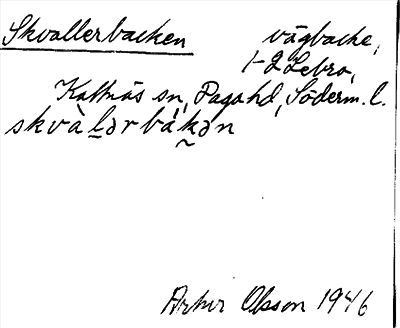 Skvallerbacken vägbacke,
1-2 Lebro,
Kattnäs sn, Daga hd, Söderm. l.
skvàḻərbákə̰n
Artur Olsson 1946